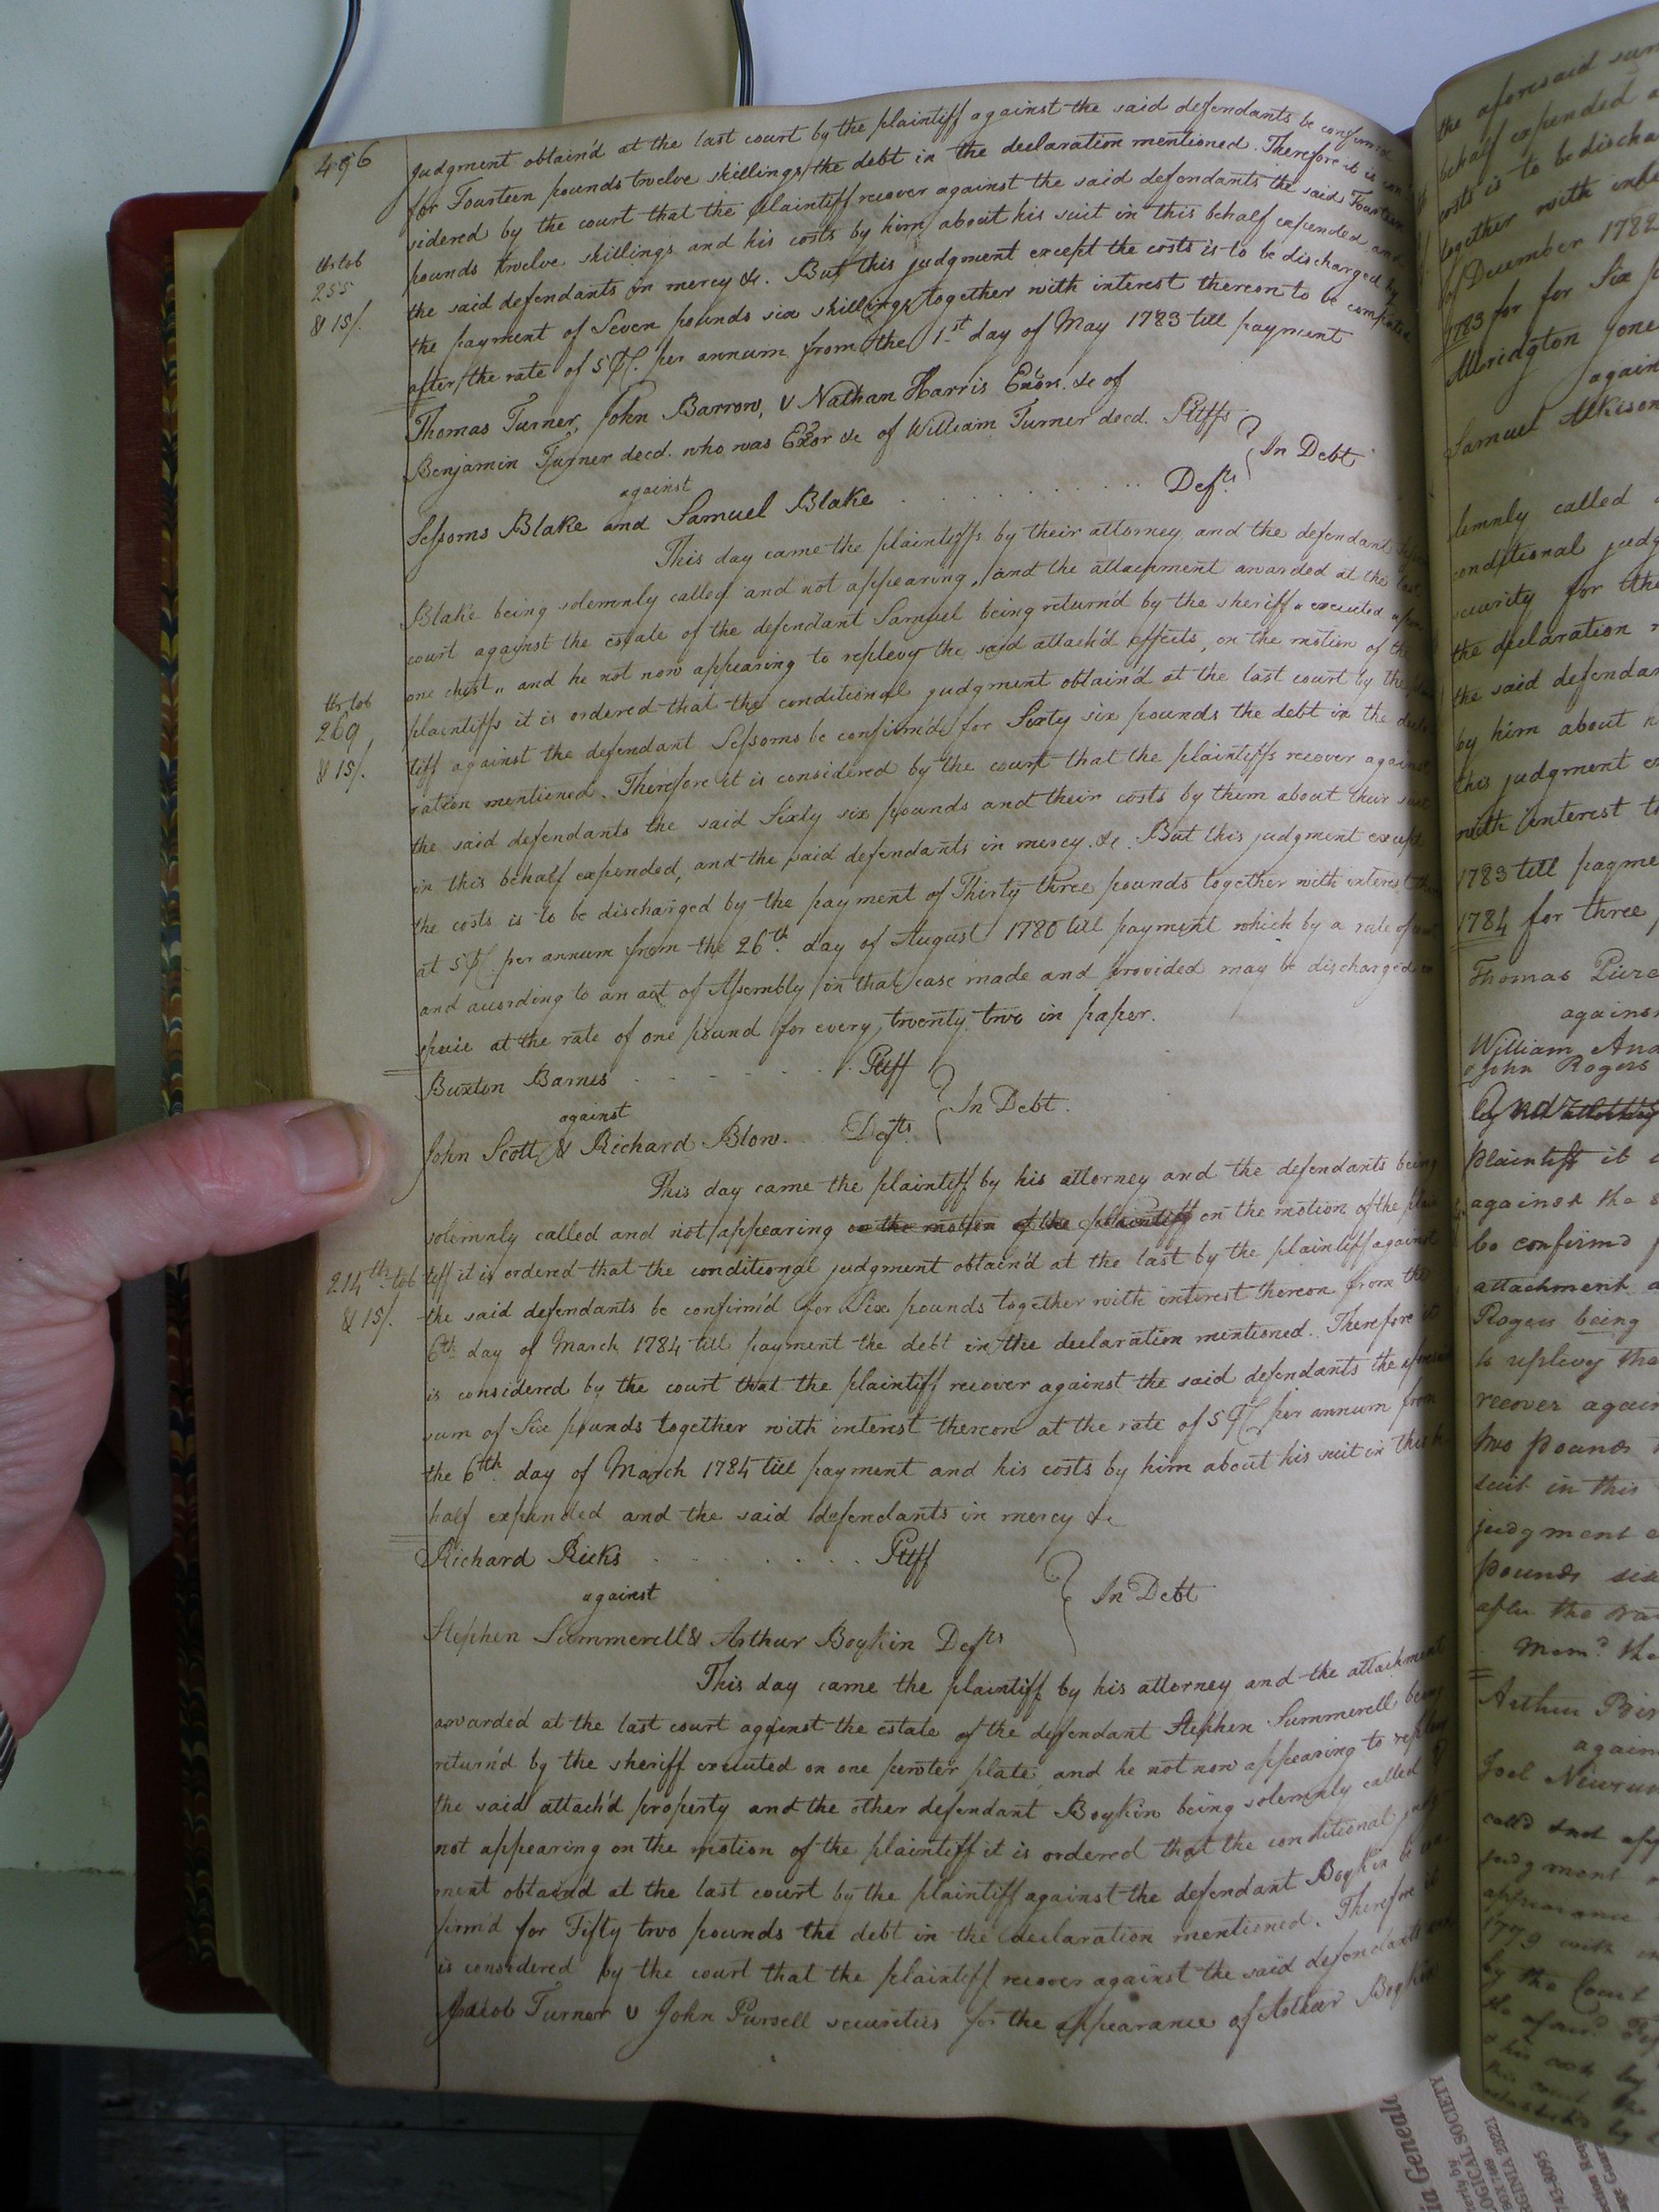 496
Judgment obtain'd at the last court by the plaintiff against the said defendants be confirmed
for Fourteen pounds twelve shillings the debt in the declaration mentioned. Therefore it is con
sidered by the court that the plaintiff recover against the said defendants the said Fourteen
pounds twelve shillings and his costs by him about his suit in this behalf expended and
the said defendants in mercy &c. But this judgment except the costs is to be discharged by
the payment of Seven pounds six shillings together with interest thereon to be computed
after the rate of 5 PC. per annum from the 1st day of May 1783 till payment
lbs tob
255
& 15/.
Thomas Turner, John Barrow, & Nathan Harris Exors. &c of
Benjamin Turner decd. who was Exor &c of William Turner decd. Pltffs
against
In Debt
Sessoms Blake and Samuel Blake Defts
This day came the plaintiffs by their attorney and the defendant
Blake being solemnly called and not appearing, and the attachment awarded at the last
court against the estate of the defendant Samuel being return'd by the sheriff "executed
one chest" and he not now appearing to replevy the said attach'd effects, on the motion of the
plaintiffs it is ordered that the conditional judgment obtain'd at the last court by the plain
tiff against the defendant Sessoms be confirm'd for Sixty six pounds the debt in the decla
ration mentioned. Therefore it is considered by the court that the plaintiffs recover against
the said defendants the said Sixty six pounds and their costs by them about their suit
in this behalf expended, and the said defendants in mercy &c. But this judgment except
the costs is to be discharged by the payment of Thirty three pounds together with interest
at 5 PC. per annum from the 26th day of August 1780 till payment which by a rule of
and according to an act of Assembly in that case made and provided may be discharged in
specie at the rate of one pound for every twenty two in paper.
lbs tob
269
& 15/.
Buxton Barnes Pltff
against
In Debt.
John Scott, & Richard Blow. Defts
This day came the plaintiff by his attorney and the defendants being
solemnly called and not appearing on the motion of the plaintiff on the motion of the plain
tiff it is ordered that the conditional judgment obtain'd at the last by the plaintiff against
the said defendants be confirm'd for Six pounds together with interest thereon from the
6th day of March 1784 till payment the debt in the declaration mentioned. Therefore it
is considered by the court that the plaintiff recover against the said defendants the aforesaid
sum of Six pounds together with interest thereon at the rate of 5 PC per annum from
the 6th day of March 1784 till payment and his costs by him about his suit in this be
half expended and the said defendants in mercy &c
214 lb tob
& 15/.
Richard Ricks Pltff
against
In Debt
Stephen Summerell & Arthur Boykin Defts
This day came the plaintiff by his attorney and the attachment
awarded at the last court against the estate of the defendant Stephen Summerell being
return'd by the sheriff executed on one pewter plate, and he not now appearing to replevy
the said attach'd property and the other defendant Boykin being solemnly called &
not appearing on the motion of the plaintiff it is ordered that the conditional judg
ment obtained at the last court by the plaintiff against the defendant Boykin be con
firm'd for Fifty two pounds the debt in the declaration mentioned. Therefore it
is considered by the court that the plaintiff recover against the said defendants and
Jacob Turner & John Pursell securities for the appearance of Arthur Boykin
the aforesaid sum
behalf expended
costs is to be discha
together with inte
of December 1782
1783 for for Six
Abridgton Jone
again
Samuel Atkison
lemnly called
conditional judg
security for the
the declaration
the said defendan
by him about
this judgment
with interest
1783 till payme
1784 for three
Thomas Pierc
against
William And
& John Rogers
plaintiff it
against the
be confirmd
attachment
Rogers being
to replevy the
recover again
two pounds
suit in this
judgment
pounds six
after the rat
Memd. the
Arthur
again
Joel Newsum
call'd and app
judgment
appearance
1779 with in
by the Court
ia Genealo
OGICAL SOCIETY
GINIA 23221